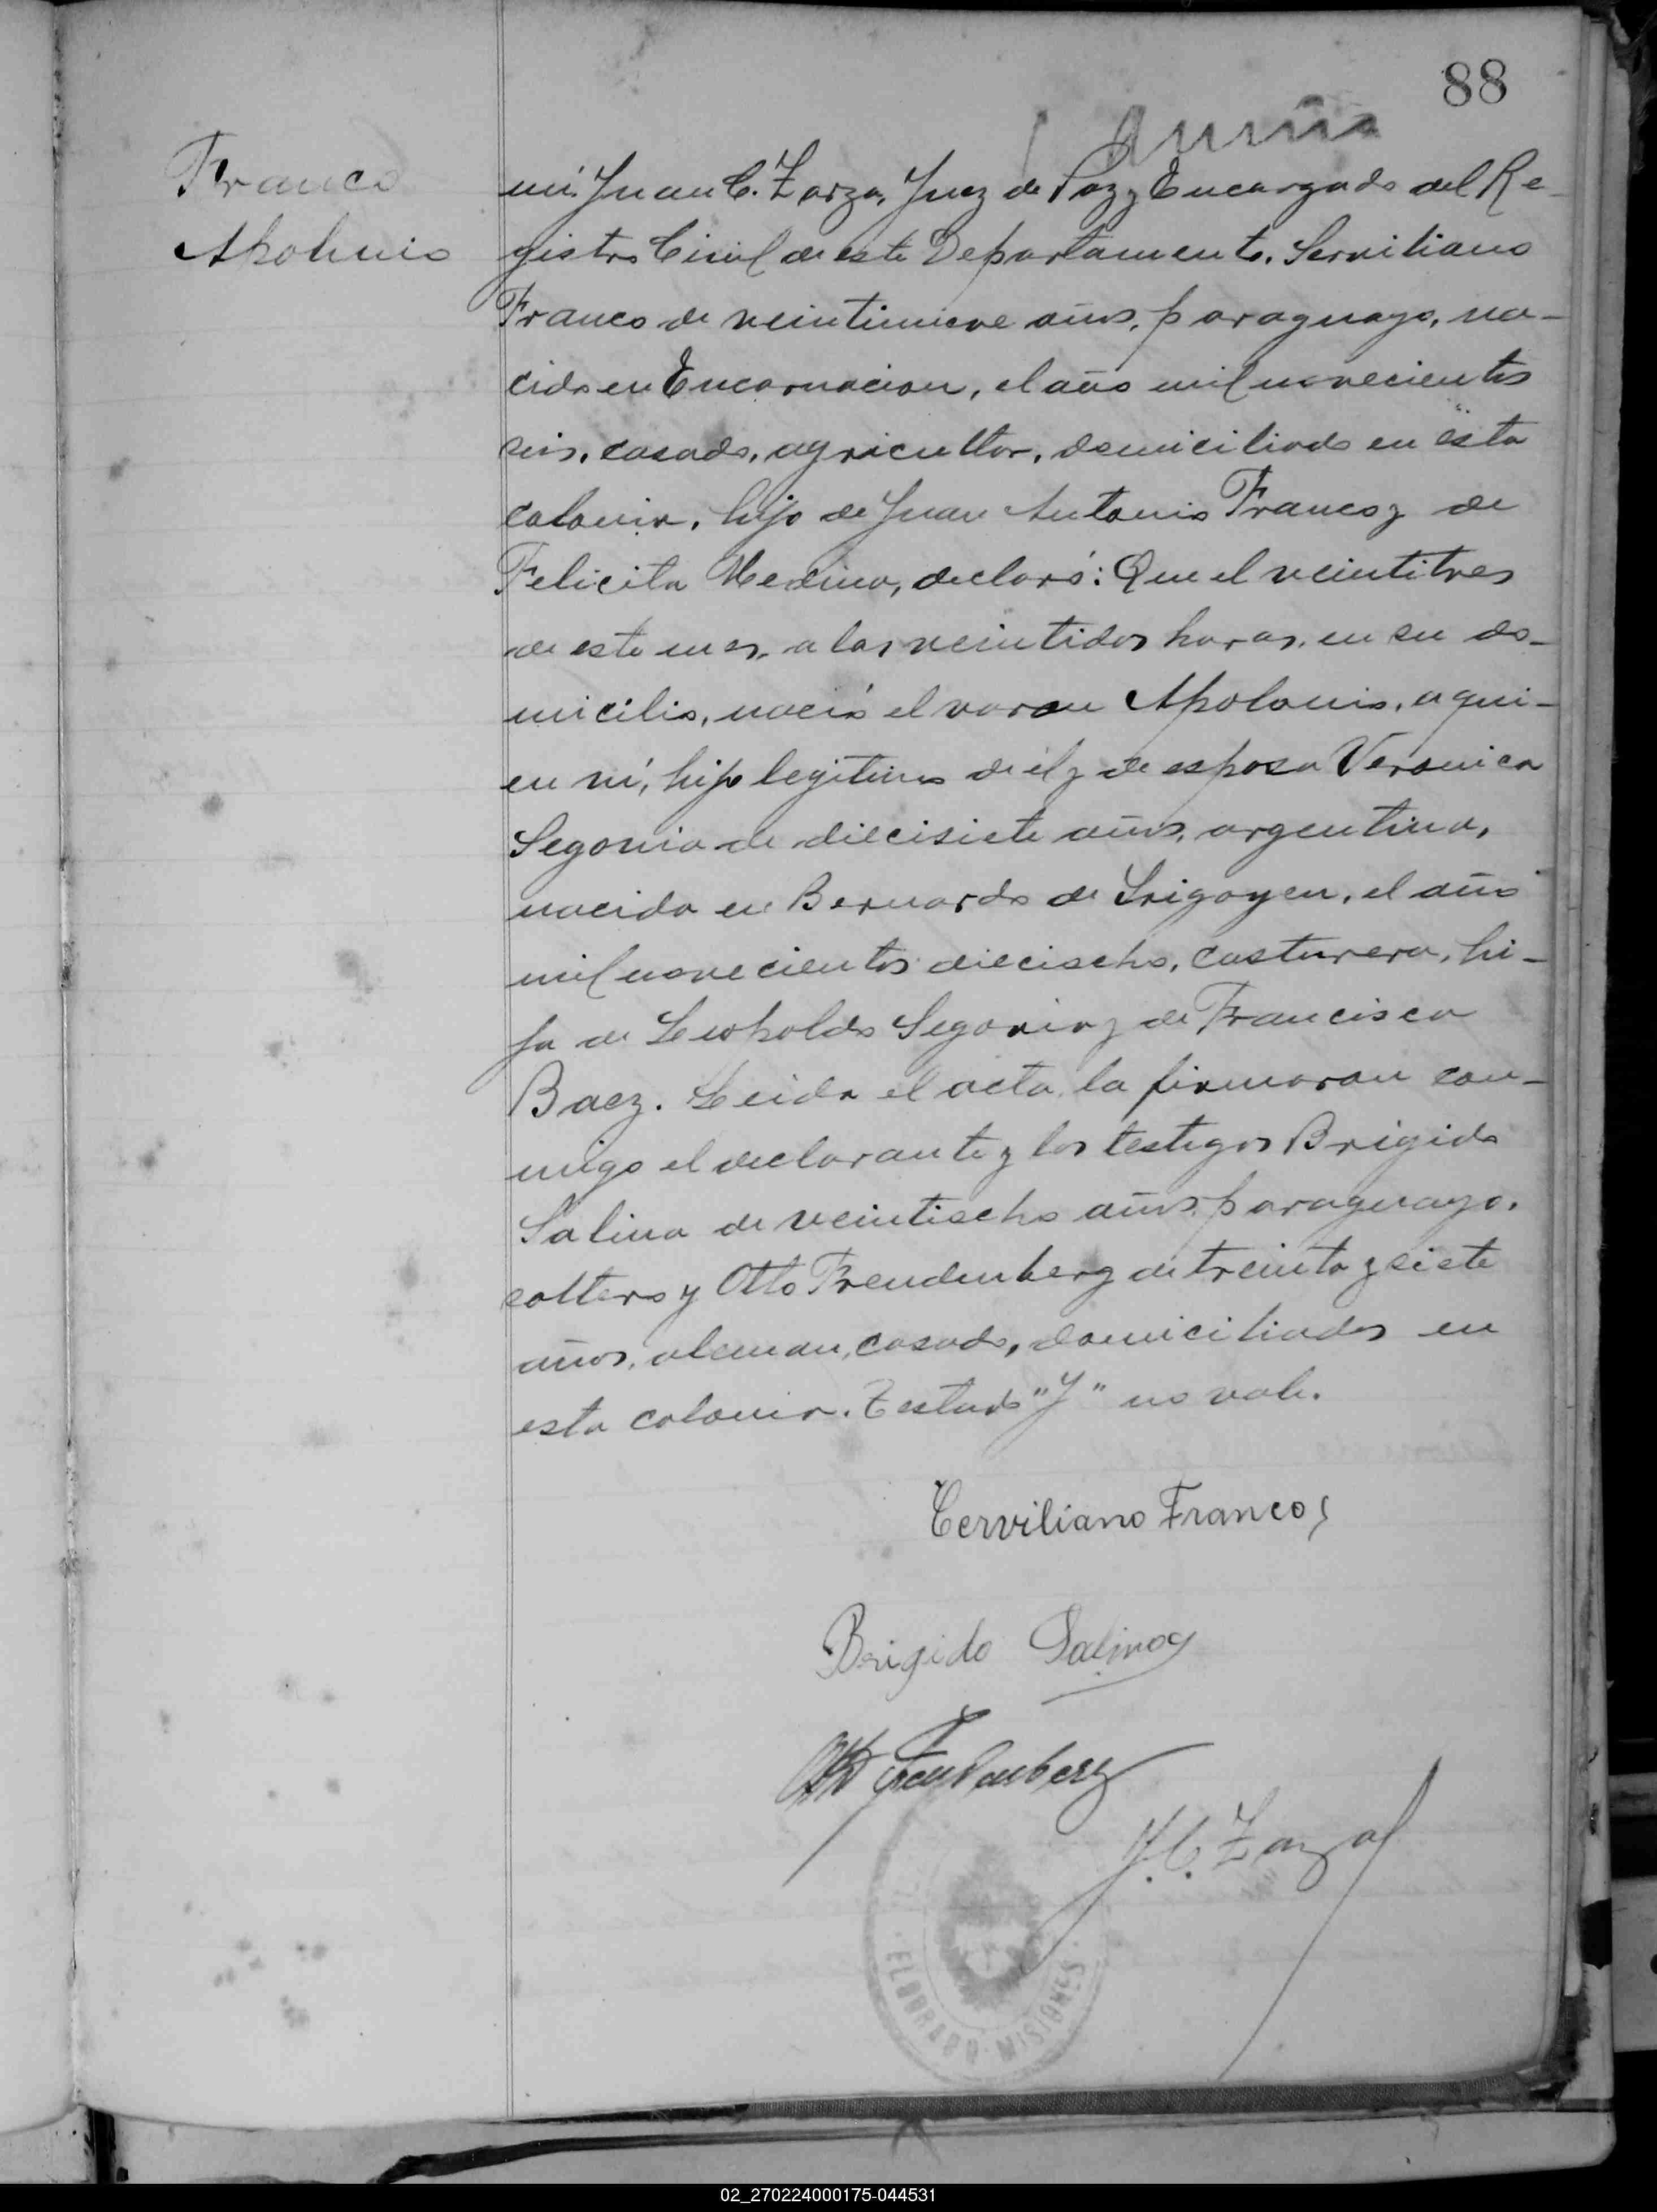 88
Franco
Apolonio
mi Juan C. Zarza, Juez de Paz y Encargado del Re-
gistro Civil de este Departamento. Serviliano
Franco de veintinueve años, paraguayo, na-
cido en Encarnacion, el año mil novecientos
seis, casado, agricultor, domiciliado en esta
colonia, hijo de Juan Antonio Franco y de
Felicita Medina, declaró: Que el veintitres
de este mes, a las veintidos horas, en su do-
micilio, nació el varon Apolonio, a qui-
en ví, hijo legitimo de él y de esposa Veronica
Segovia de diecisiete años, argentina,
nacida en Bernardo de Irigoyen, el año
mil novecientos dieciocho, costurera, hi-
ja de Leopoldo Segovia y de Francisca
Baez. Leida el acta, la firmaron con-
migo el declarante y los testigos Brigido
Salina de veintiocho años, paraguayo,
soltero y Otto Freudenberg de treinta y siete
años, aleman, casado, domiciliados en
esta colonia. Testado "Y" no vale.
Cerviliano Franco
Brigido Salinas
Otto Freudenberg
J. C. Zarza
ELDORADO · MISIONES
02_270224000175-044531